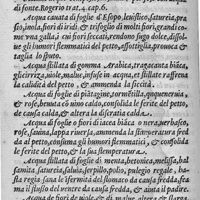 di fonte. Rogerio trat. 4. cap. 6.
Acqua canata di foglie d'Esopo, leuistico, satureia, pra
sio, iroia, fiori di iridi, & trifoglio di molti fiori, grandi co
me vna galla, i cui fiori seccati, rendono sugo dolce, dissol
ue gli humori flemmatici del petto, assottiglia, prouoca &
taglia lo sputo.
Acqua stillata di gomma Arabica, tragacanta biãca,
gliciriza, viole, malue, infuse in acqua, et stillate raffrena
la calidità del petto, & ammenda la siccità.
Acqua di foglie di piãtagine, tormẽtilla, quipeneruia,
& rose, bruna cõ vino caldo, consolida le ferite del petto,
de causa calda, & altera la discrasia calda.
Acqua di foglie o fiori di iacea biãca o nera, perbasso,
rose, sauina, lappa riuersa, ammenda la stẽperatura fred
da del petto, consuma gli humori flemmatici, & consoli
da le ferite del petto, & la sua stemperatura.
Acqua stillata di foglie di menta, betonica, melissa, bal
samita, satureia, saluia, serpillo, polio, pulegio regale, ba
fia regia sana le
stemperature del stomaco de causa fredda, fer
ma il flusso del ventre da causa fredda, & aiuta il padire.
Acqua de fiori de viole & di malue altera & slarga